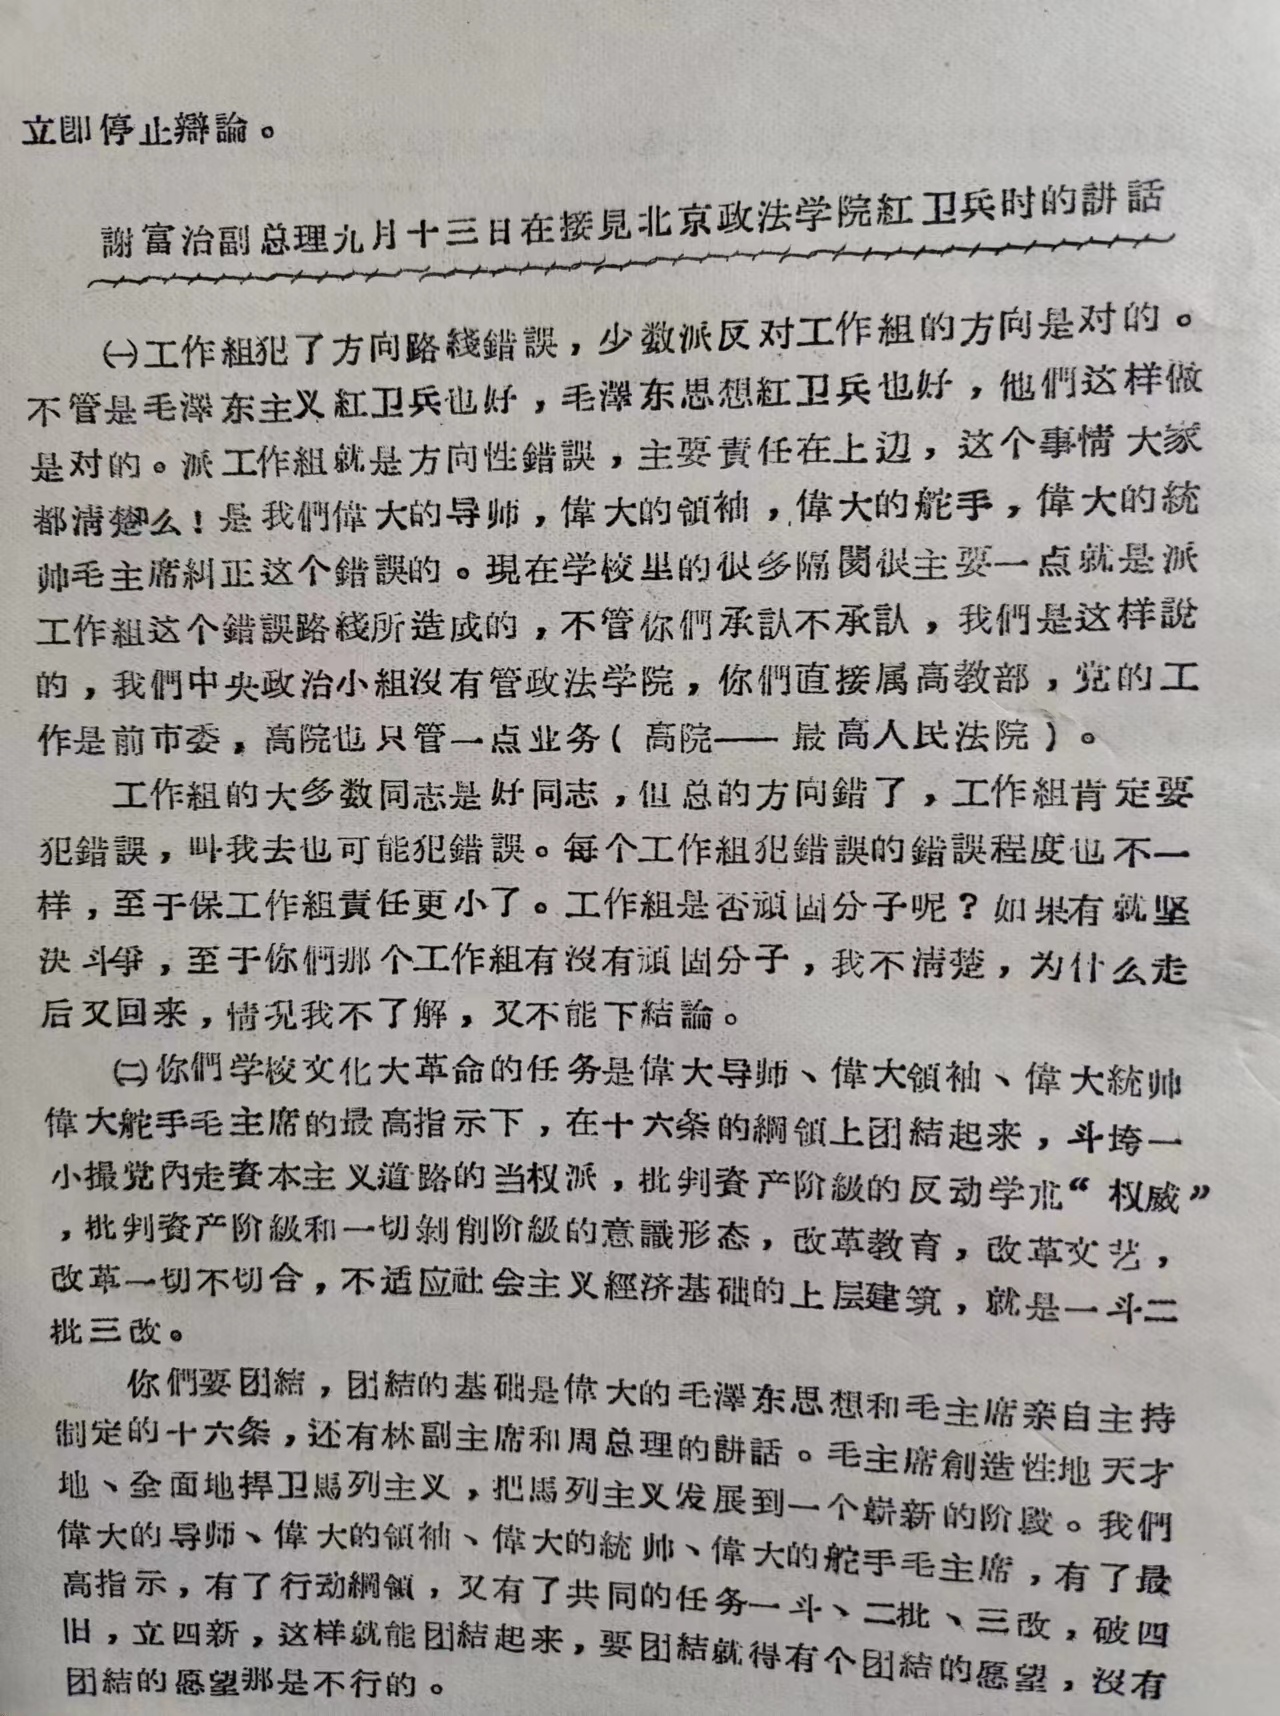 立即停止辯論。
謝富治副总理九月十三日在接見北京政法学院紅卫兵时的講話
㈠工作組犯了方向路綫錯誤，少数派反对工作組的方向是对的。
不管是毛澤东主义紅卫兵也好，毛澤东思想紅卫兵也好，他們这样做
是对的。派工作組就是方向性錯誤，主要責任在上边，这个事情大家
都清楚么！是我們偉大的导师，偉大的領袖，偉大的舵手，偉大的統
帅毛主席糾正这个錯誤的。現在学校里的很多隔閡很主要一点就是派
工作組这个錯誤路綫所造成的，不管你們承認不承認，我們是这样說
的，我們中央政治小組沒有管政法学院，你們直接属高教部，党的工
作是前市委，高院也只管一点业务（高院——最高人民法院）。
工作組的大多数同志是好同志，但总的方向錯了，工作組肯定要
犯錯誤，叫我去也可能犯錯誤。每个工作組犯錯誤的錯誤程度也不一
样，至于保工作組責任更小了。工作組是否頑固分子呢？如果有就坚
決斗爭，至于你們那个工作組有沒有頑固分子，我不清楚，为什么走
后又回来，情况我不了解，又不能下結論。
㈡你們学校文化大革命的任务是偉大导师、偉大領袖、偉大統帅
偉大舵手毛主席的最高指示下，在十六条的綱領上团結起来，斗垮一
小撮党內走資本主义道路的当权派，批判資产阶級的反动学朮“权威”
，批判資产阶級和一切剝削阶級的意識形态，改革教育，改革文艺，
改革一切不切合，不适应社会主义經济基础的上层建筑，就是一斗二
批三改。
你們要团結，团結的基础是偉大的毛澤东思想和毛主席亲自主持
制定的十六条，还有林副主席和周总理的講話。毛主席創造性地天才
地、全面地捍卫馬列主义，把馬列主义发展到一个崭新的阶段。我們
偉大的导师、偉大的領袖、偉大的統帅、偉大的舵手毛主席，有了最
高指示，有了行动綱領，又有了共同的任务一斗、二批、三改，破四
旧，立四新，这样就能团結起来，要团結就得有个团結的愿望，沒有
团結的愿望那是不行的。